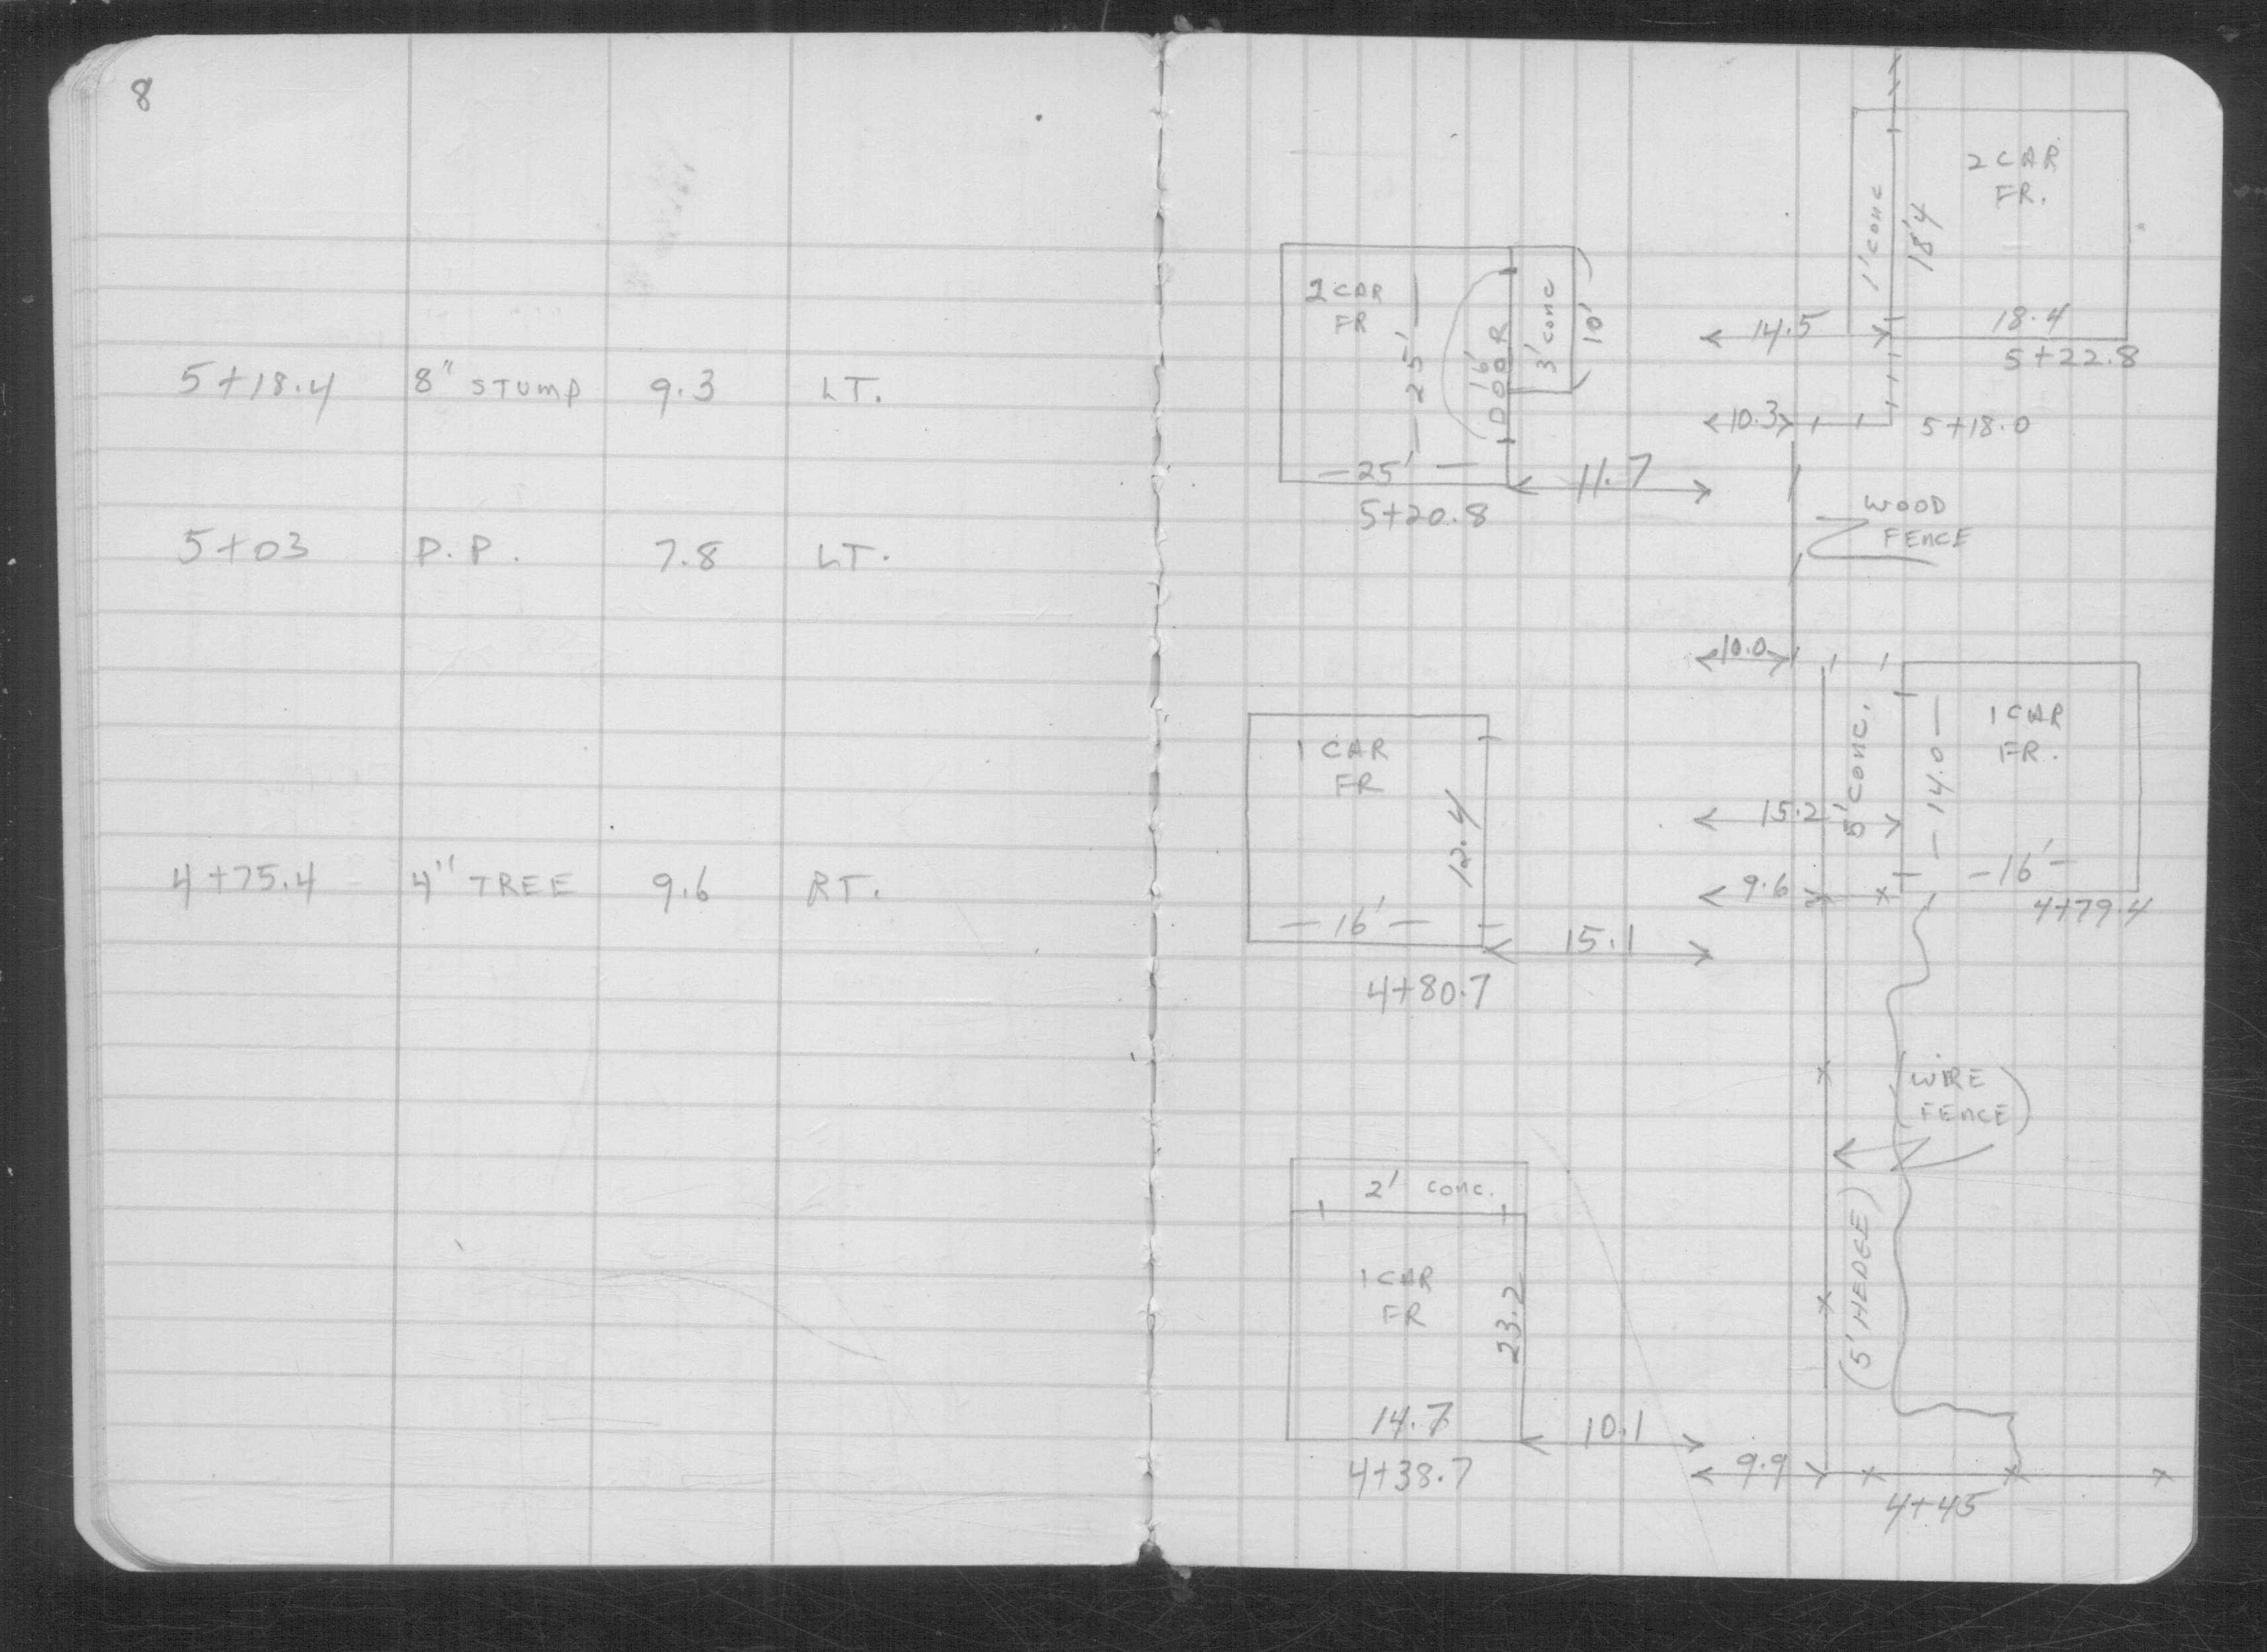 8
5+18.4 8" STUMP 9.3 LT.
5+03 P.P. 7.8 LT.
4+75.4 4" TREE 9.6 RT.
2 CAR
FR.
1' conc
18'4
18.4
14.5
5+22.8
10.3
5+18.0
2 CAR
FR
25'
16'
DOOR
3' conc
10'
25'
11.7
5+20.8
WOOD
FENCE
10.0
1 CAR
FR
12.4
16'
15.1
4+80.7
5' conc.
14.0
1 CAR
FR.
15.2
16'
9.6
4+79.4
(WIRE
FENCE)
(5' HEDGE)
2' conc.
1 CAR
FR
23.2
14.7
10.1
4+38.7
9.9
4+45